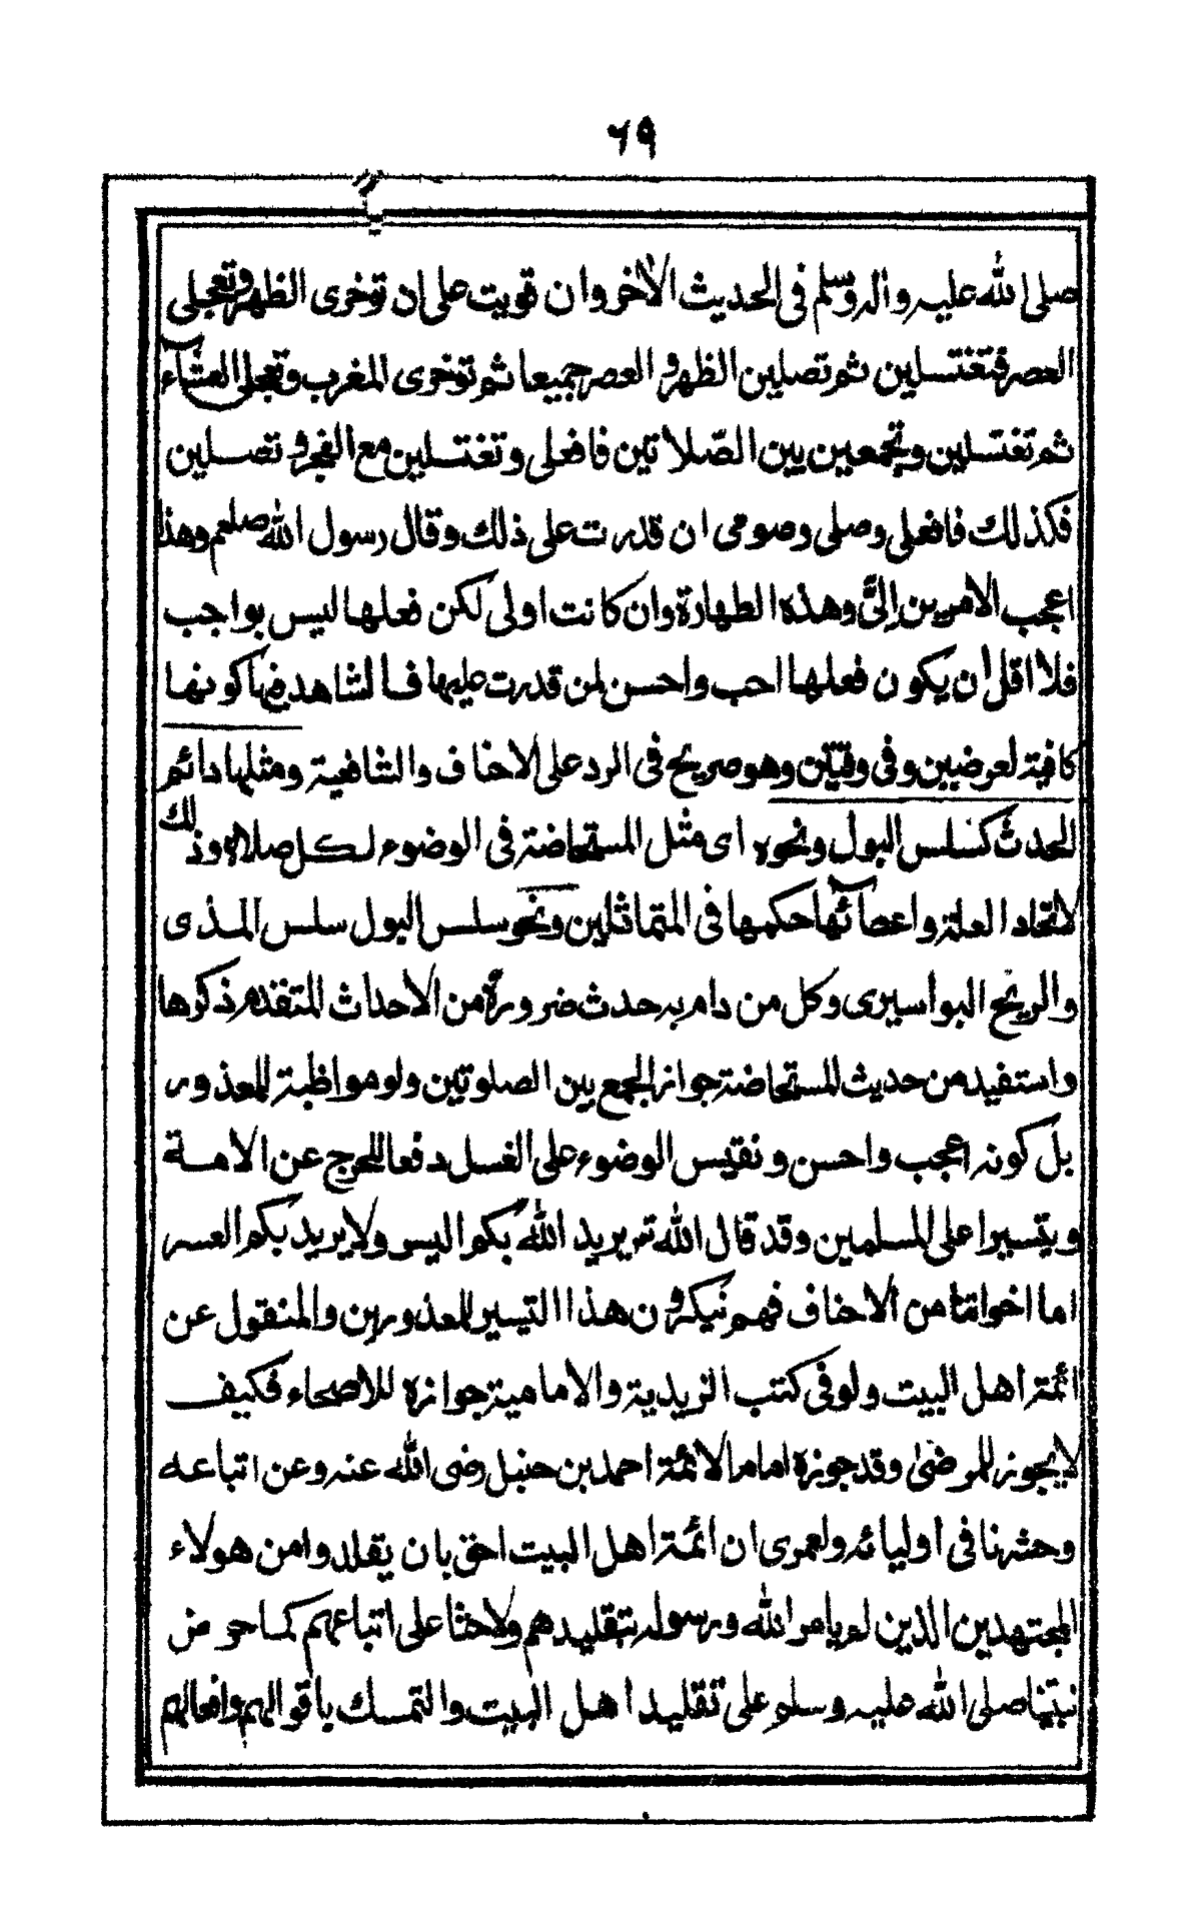 ٦٩
صلى الله عليه واله وسلم فى الحديث الأخر وان قويت على ان توخرى الظهر وتعجلى
العصر فتغتسلين ثم تصلين الظهر و العصر جميعا ثم توخرى المغرب وتعجلى العشاء
ثم تغتسلين وتجمعين بين الصّلاتين فافعلى وتغتسلين مع الفجر و تصلين
فكذلك فافعلى وصلى وصومى ان قدرت على ذلك وقال رسول الله صلعم وهذا
اعجب الامرين إلىَّ وهذه الطهارة وان كانت اولى لكن فعلها ليس بواجب
فلا اقل أن يكون فعلها احب واحسن لمن قدرت عليها فالشاهد فيها كونها
كافية لعرضين وفى وقتين وهو صريح فى الرد على الاحناف والشافعية ومثلها دائم
الحدث كسلس البول ونحوه اى مثل المستحاضة فى الوضوء لكل صلاة وذلك
لاتحاد العلة واعطائها حكمها فى المتماثلين ونحو سلس البول سلس المذى
والريح البواسيرى وكل من دام به حدث ضرورةً من الأحداث المتقدم ذكرها
واستفيد من حديث المستحاضة جواز الجمع بين الصلوتين ولو مواظبة للمعذور
بل كونه اعجب واحسن ونقيس الوضوء على الغسل دفعا للحرج عن الامة
ويتسيرا على المسلمين وقد قال الله تع يريد الله بكم اليسر ولا يريد بكم العسر
اما اخواننا من الاحناف فهم نيكرون هذا التيسير للمعذورين والمنقول عن
ائمة اهل البيت ولو فى كتب الزيدية والامامية جوازه للاصحاء فكيف
لا يجوز للمرضىٰ وقد جوزه امام الائمة احمد بن حنبل رضى الله عنه وعن اتباعه
وحشرنا فى أوليائه ولعمرى ان ائمة اهل البيت احق بان يقلدوا من هولاء
المجتهدين الذين لم يامر الله ورسوله بتقليدهم ولا حثا على اتباعهم كما حرض
نبينا صلى الله عليه وسلم على تقليد اهل البيت والتمسك باقوالهم وافعالهم